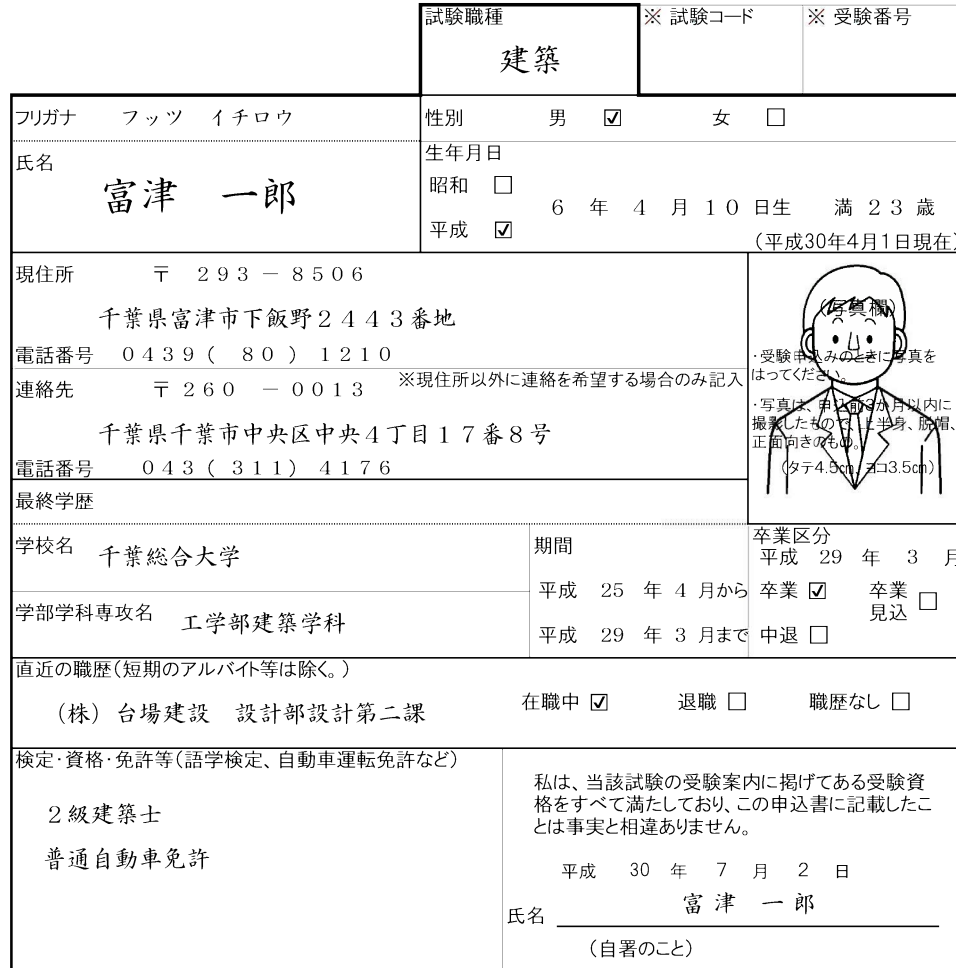 試験職種
※ 試験コード
※ 受験番号
建築
フリガナ フッツ イチロウ
性別 男 ☑ 女 □
氏名
富津 一郎
生年月日
昭和 □
平成 ☑
6 年 4 月 10 日生 満 23 歳
(平成30年4月1日現在)
現住所 〒 293－8506
千葉県富津市下飯野2443番地
電話番号 0439( 80) 1210
連絡先 〒260 －0013 ※現住所以外に連絡を希望する場合のみ記入
千葉県千葉市中央区中央4丁目17番8号
電話番号 043( 311) 4176
(写真欄)
・受験申込みのときに写真を
はってください。
・写真は、申込前3か月以内に
撮影したもので、上半身、脱帽、
正面向きのもの。
(タテ4.5cm、ヨコ3.5cm)
最終学歴
学校名 千葉総合大学
学部学科専攻名 工学部建築学科
期間
平成 25 年 4 月から
平成 29 年 3 月まで
卒業区分
平成 29 年 3 月
卒業 ☑ 卒業
見込 □
中退 □
直近の職歴(短期のアルバイト等は除く。)
(株)台場建設 設計部設計第二課
在職中 ☑ 退職 □ 職歴なし □
検定・資格・免許等(語学検定、自動車運転免許など)
2級建築士
普通自動車免許
私は、当該試験の受験案内に掲げてある受験資
格をすべて満たしており、この申込書に記載したこ
とは事実と相違ありません。
平成 30 年 7 月 2 日
氏名 富津 一郎
(自署のこと)